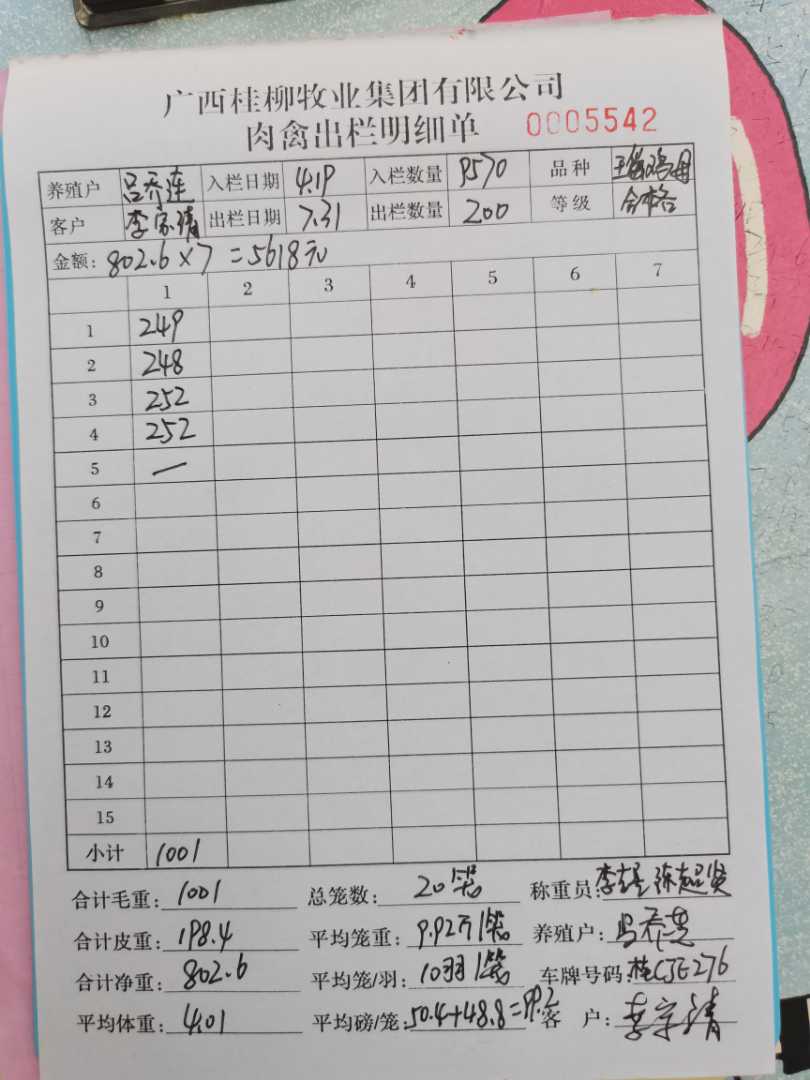 广西桂柳牧业集团有限公司
肉禽出栏明细单 0005542
养殖户 吕乔连 入栏日期 4.19 入栏数量 9570 品种
客户 李家清 出栏日期 7.31 出栏数量 200 等级 合格
金额: 802.6×7=5618元
1 2 3 4 5 6 7
1 249
2 248
3 252
4 252
5 —
6
7
8
9
10
11
12
13
14
15
小计 1001
合计毛重: 1001 总笼数: 20笼 称重员:
合计皮重: 198.4 平均笼重: 9.92斤/笼 养殖户:
合计净重: 802.6 平均笼/羽: 10羽/笼 车牌号码: 桂CJE276
平均体重: 4.01 平均磅/笼: 50.4+48.8=99.2 客户: